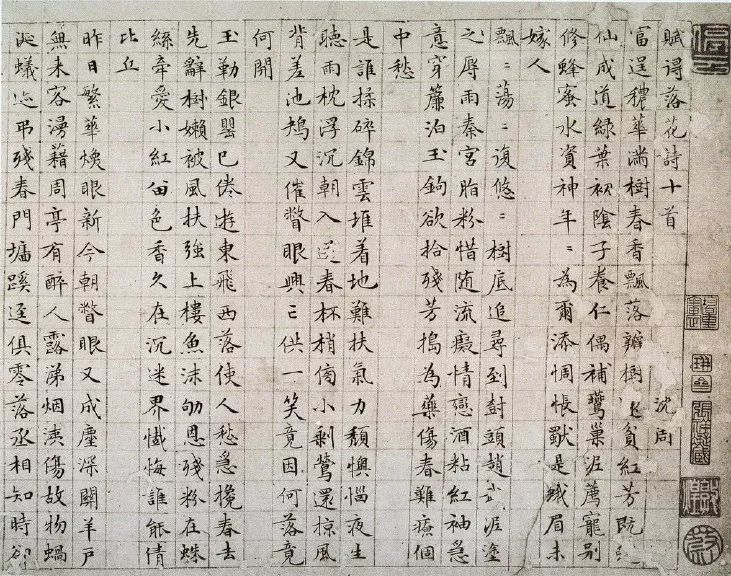 賦得落花詩十首
沈周
富逞穠華滿樹春香飄落瓣樹還貧紅芳既蛻
仙成道綠葉初陰子養仁偶補鶯巢泥薦寵別
修蜂蜜水資神年〻為爾添惆悵獸是娥眉未
嫁人
飄〻蕩〻復悠〻樹底追尋到封頭趙武泥塗
之辱雨秦宮脂粉惜隨流癡情戀酒粘紅袖急
意穿簾泊玉鉤欲拾殘芳搗為藥傷春難療個
中愁
是誰揉碎錦雲堆着地難扶氣力頹懊惱夜生
聽雨枕浮沉朝入送春杯梢傍小剩鶯還掠風
背差池鴆又催瞥眼興亡供一笑竟因何落竟
何開
玉勒銀罌已倦遊東飛西落使人愁急攙春去
先辭樹嬾被風扶強上樓魚沫劬恩殘粉在蛛
絲牽愛小紅留色香久在沉迷界懺悔誰能倩
比丘
昨日繁華煥眼新今朝瞥眼又成塵深關羊戶
無來客漫藉周亭有醉人露涕烟洟傷故物蝸
涎蟻迹弔殘春門墻蹊逕俱零落丞相知時卻